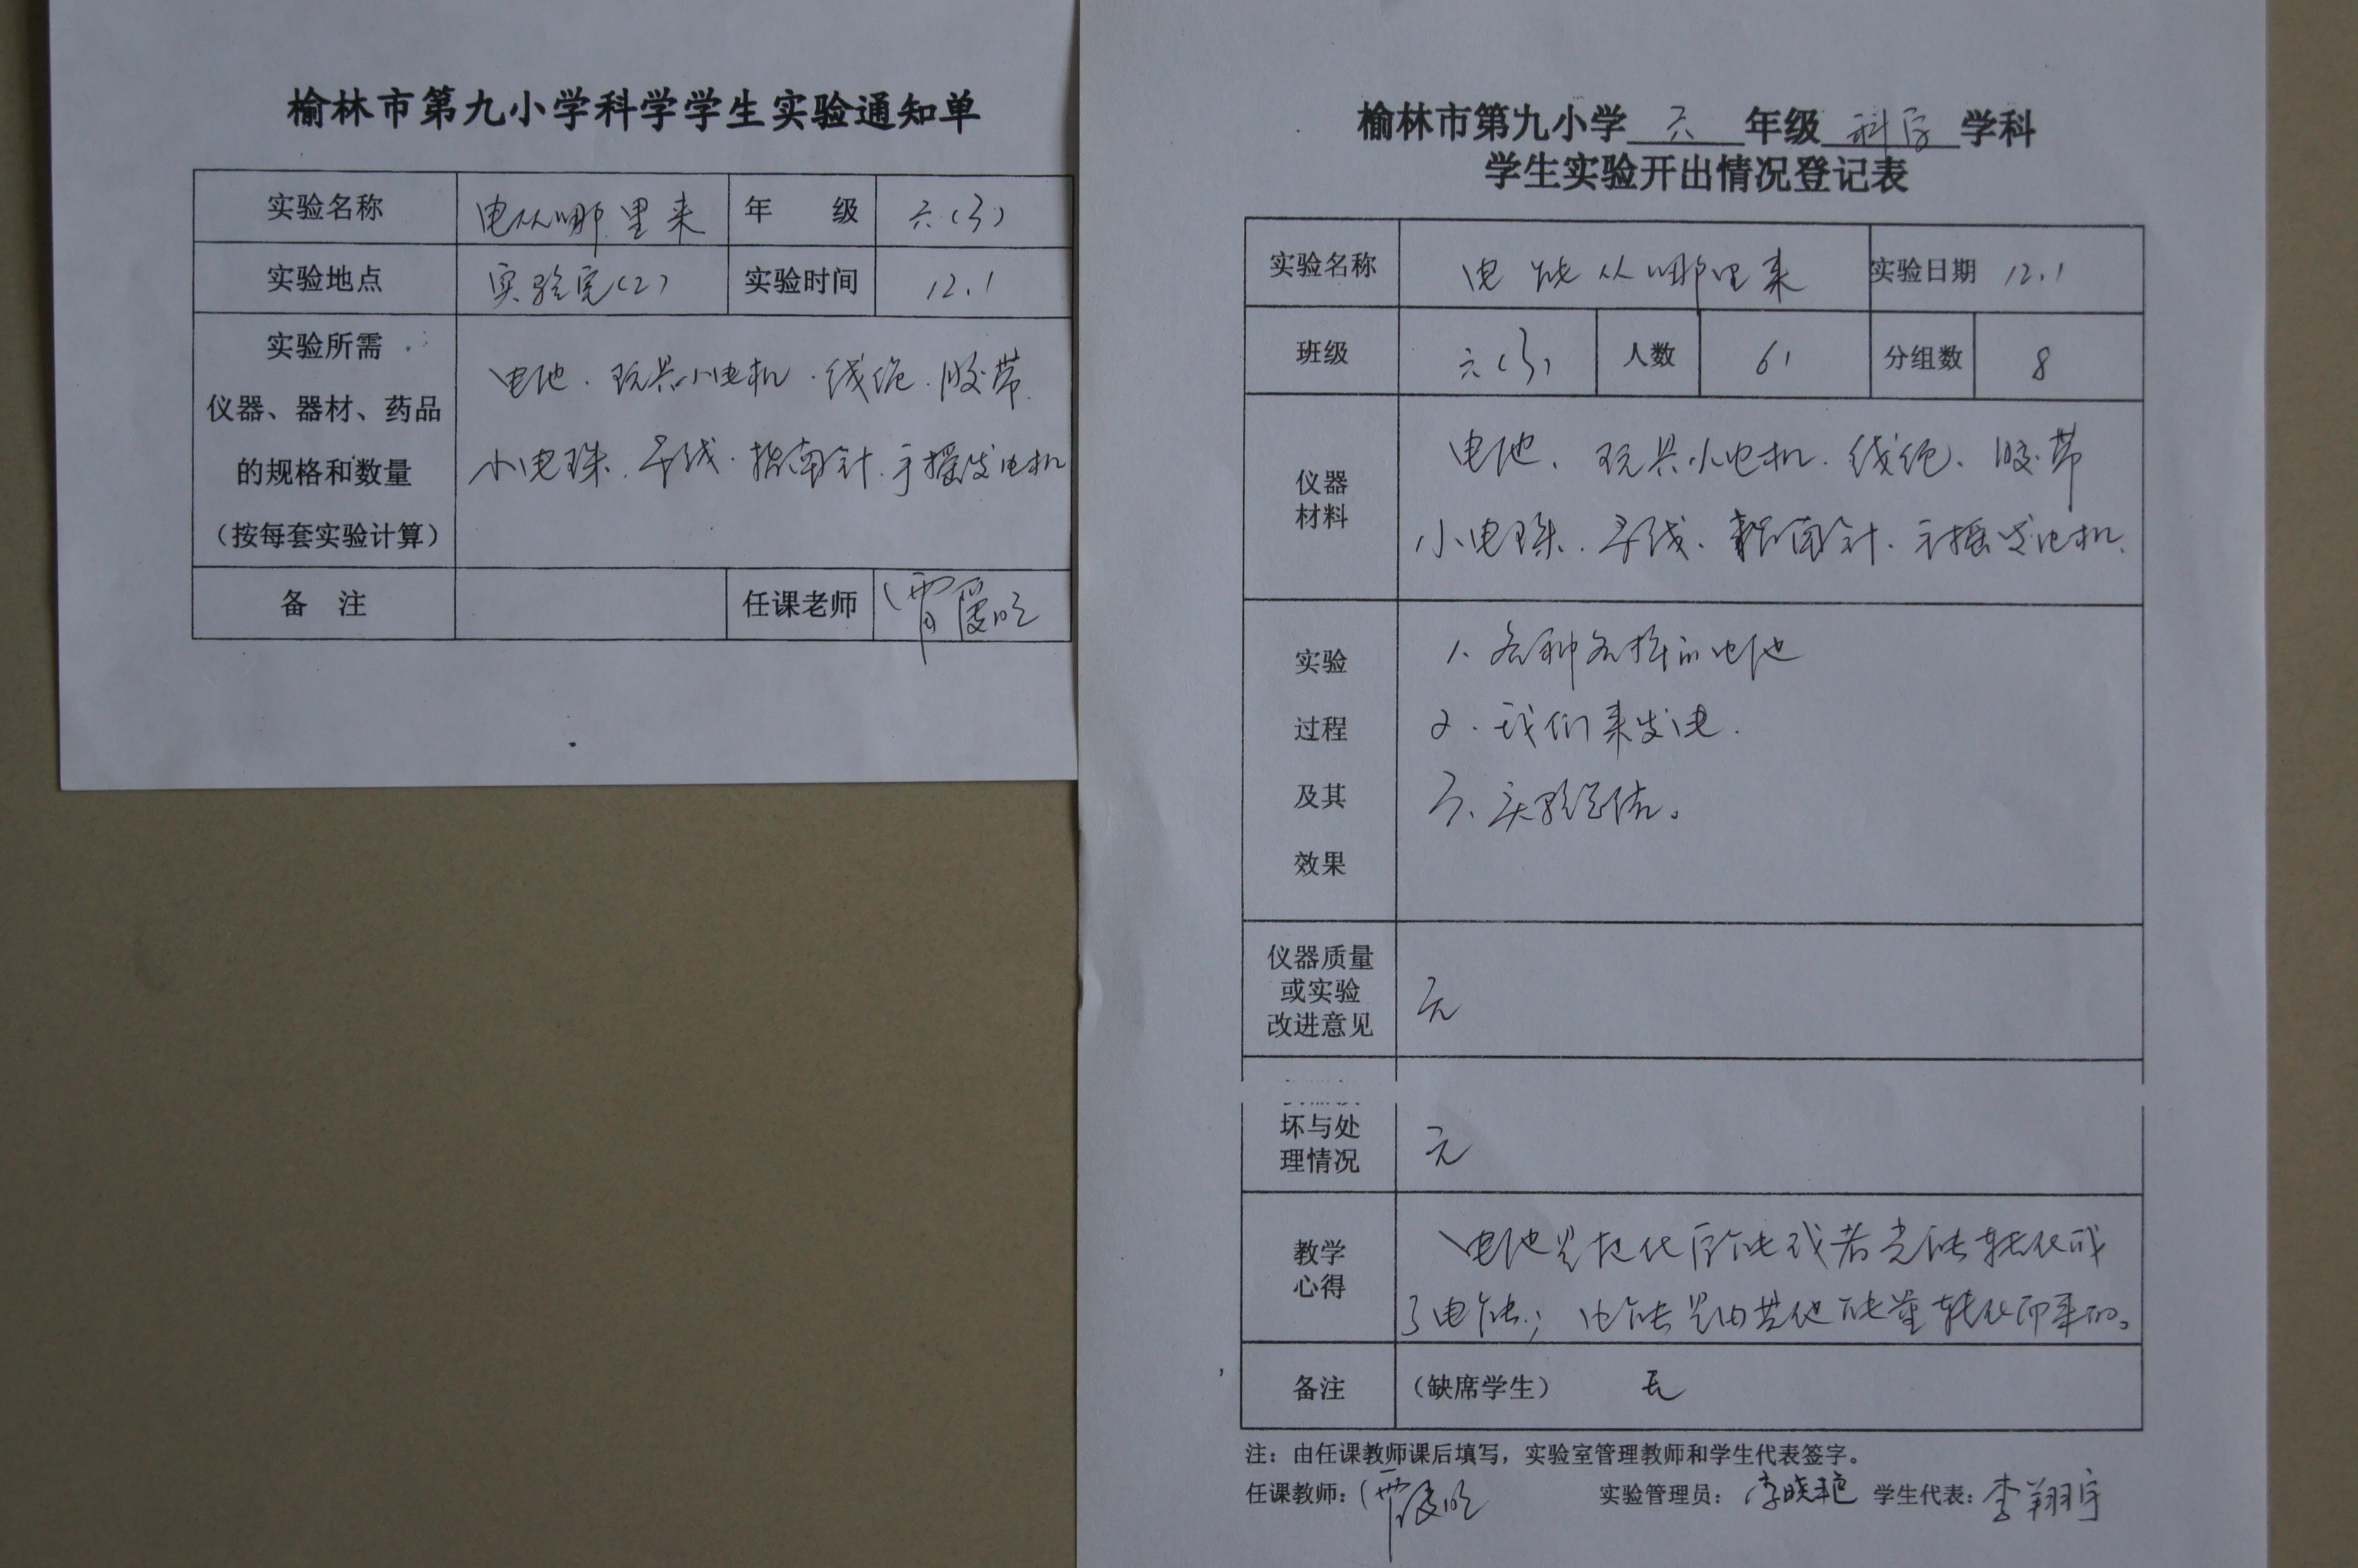 榆林市第九小学科学学生实验通知单
实验名称 电从哪里来 年 级 六(3)
实验地点 实验室(2) 实验时间 12.1
实验所需
仪器、器材、药品
的规格和数量
(按每套实验计算)
电池.玩具小电机.线绕.胶带.
小电珠.导线.指南针.手摇发电机
备 注 任课老师
榆林市第九小学 六 年级 科学 学科
学生实验开出情况登记表
实验名称 电能从哪里来 实验日期 12.1
班级 六(3) 人数 61 分组数 8
仪器
材料
电池、玩具小电机.线绕、胶带
小电珠.导线、指南针.手摇发电机、
实验
过程
及其
效果
1、各种各样的电池
2.我们来发电.
3、实验总结。
仪器质量
或实验
改进意见
无
坏与处
理情况
无
教学
心得
电池是把化学能或者光能转化成
了电能;电能是由其他能量转化而来的。
备注 (缺席学生) 无
注:由任课教师课后填写,实验室管理教师和学生代表签字。
任课教师: 实验管理员:李晓艳 学生代表:李翔宇